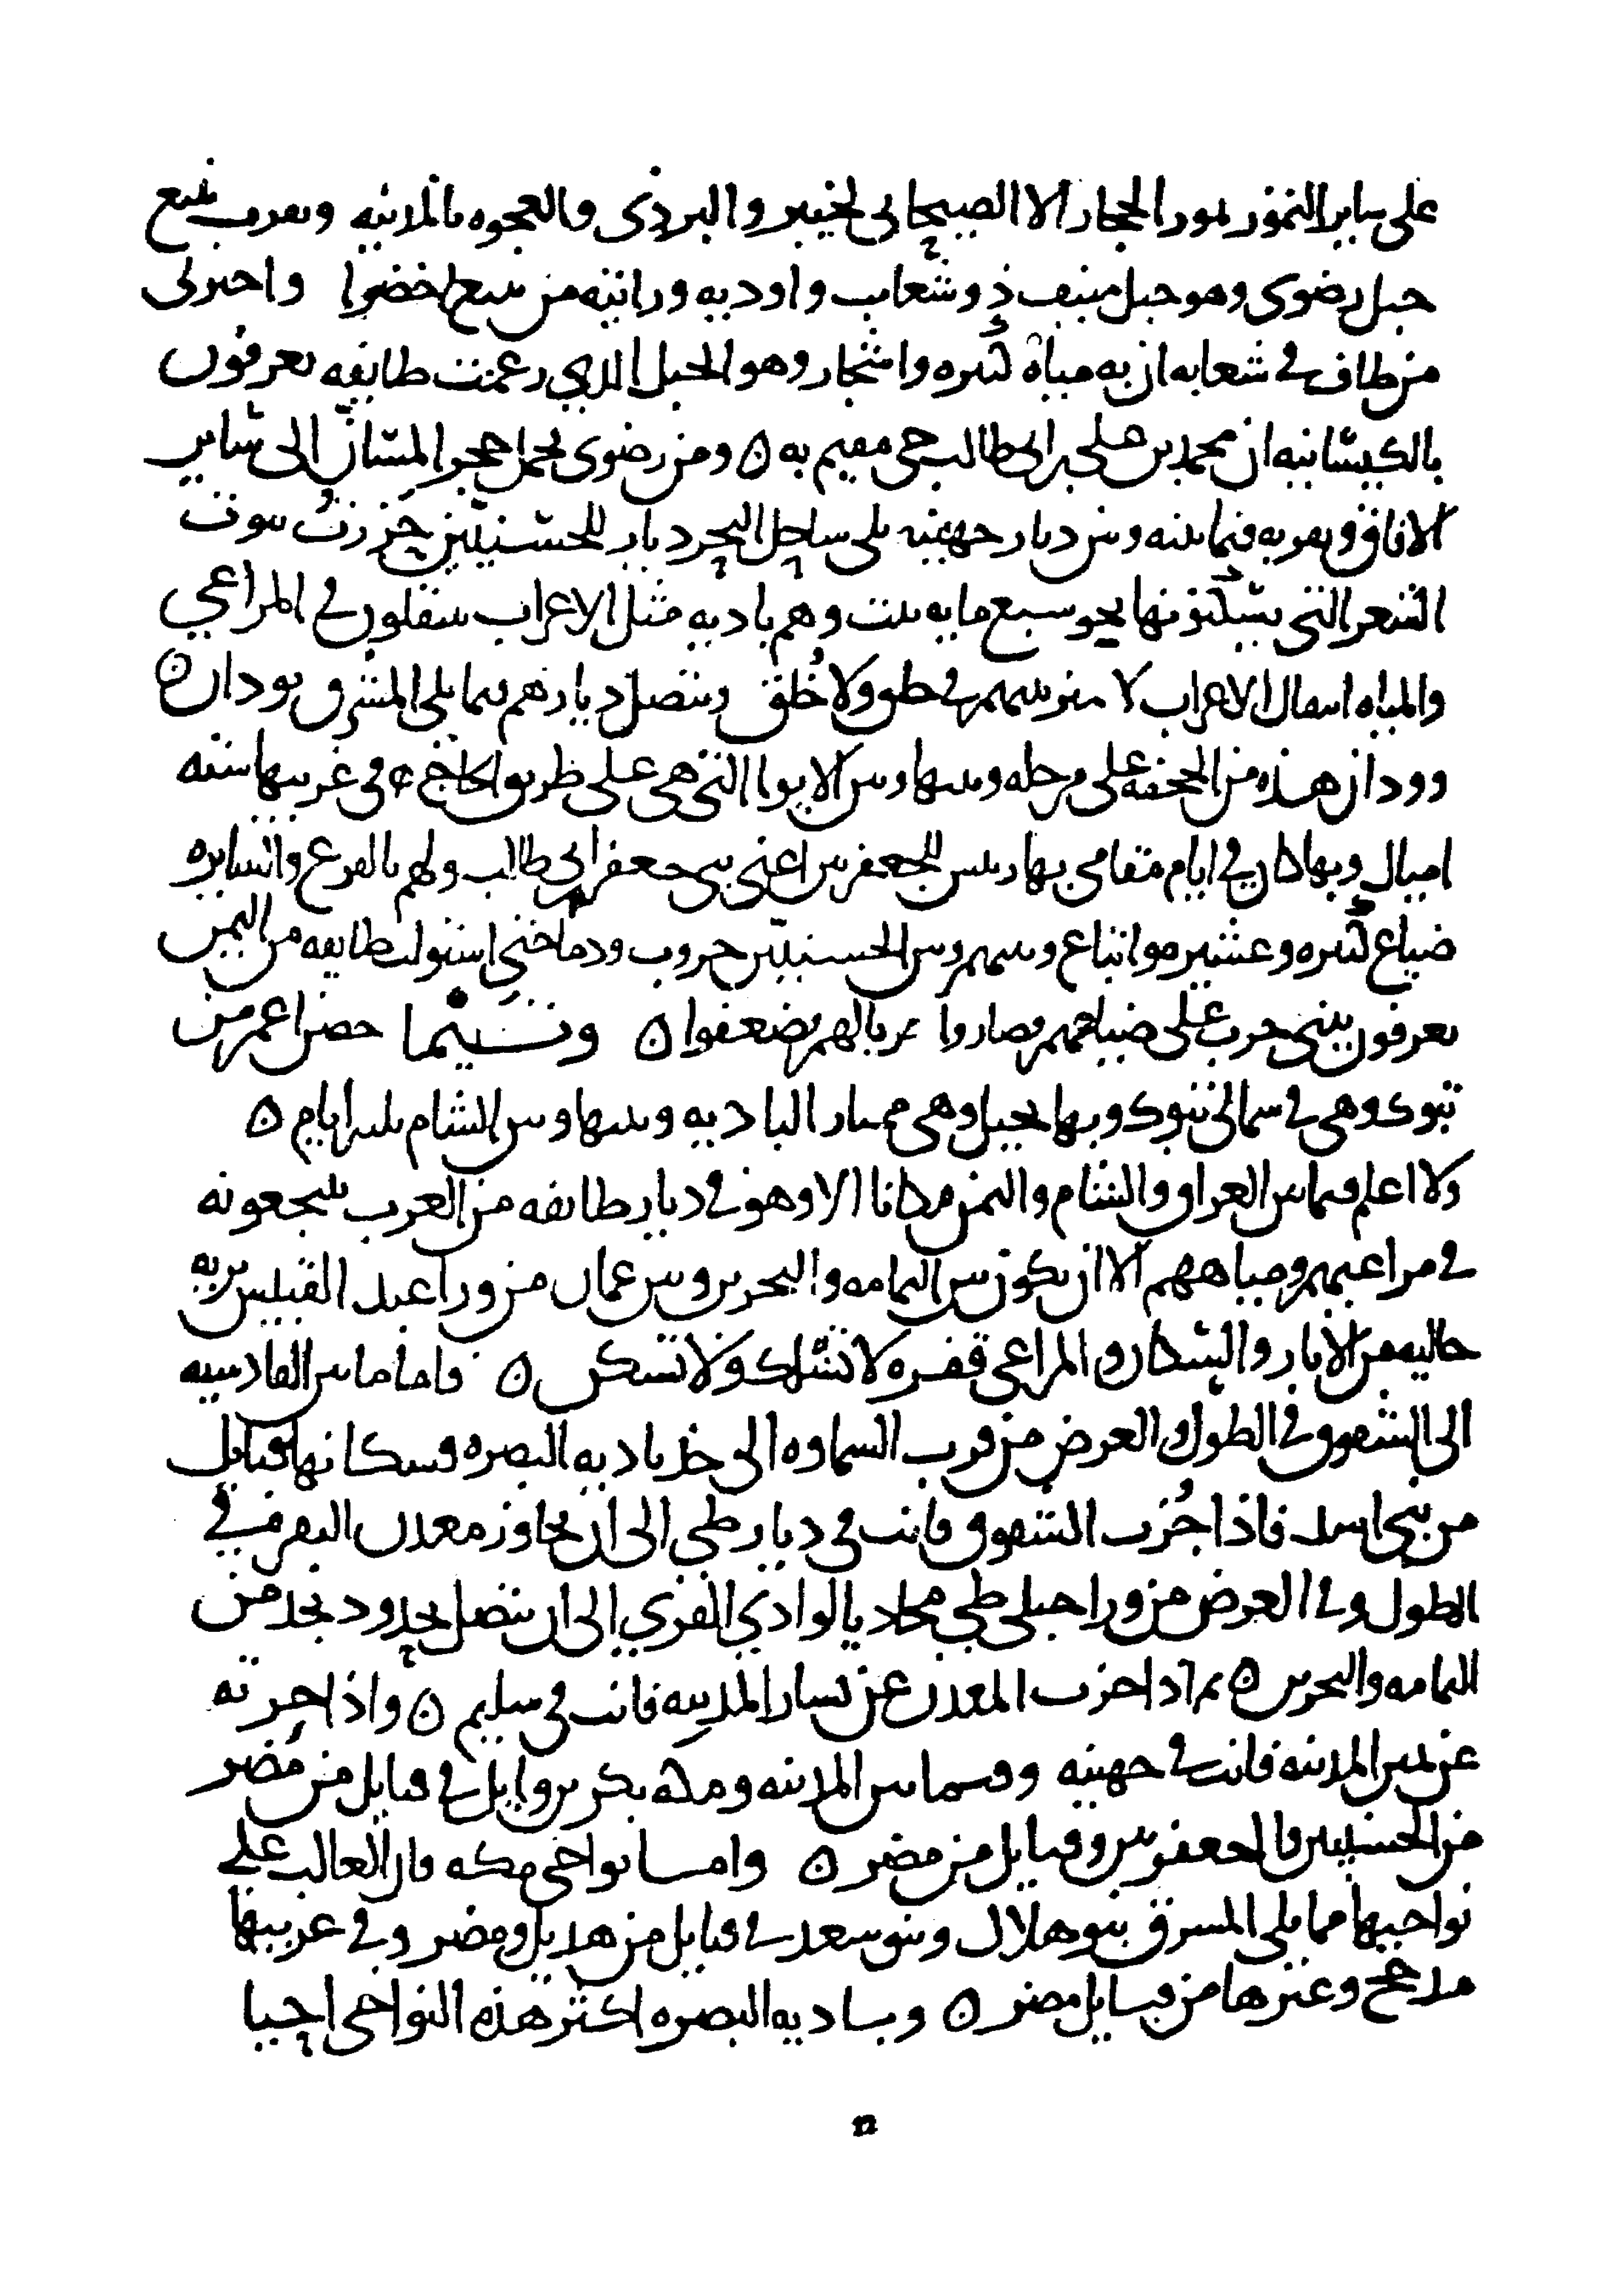 على ساير التمور تمور الحجاز الا الصيحاني بخيبر والبردي والعجوه بالمدينه وبقرب ينبع
جبل رضوى وهو جبل منيف ذو شعاب واوديه ورايته من ينبع اخضرا واخبرني
من طاف في شعابه ان به مياه كثيره واشجار وهو الجبل الذي زعمت طايفه تعرفون
بالكيسانيه ان محمد بن علي بن ابي طالب حي مقيم به ٥ ومن رضوى يحمل حجر المسان الى ساير
الافاق وبقربه فيما بينه وبين ديار جهينه يلي ساحل البحر ديار للحسنيين حزرت بيوت
الشعر التي يسكنونها نحو سبع مايه بيت وهم باديه مثل الاعراب ينتقلون في المراعي
والمياه انتقال الاعراب لا ميز بينهم في خلق ولا خُلق وتتصل ديارهم مما يلي المشرق بودان ٥
وودان هذه من الجحفه على مرحله وبينها وبين الابوا التي هي على طريق الحاج في غربيها سته
اميال وبها كان في ايام مقامي بها رييس للجعفريين اعني بني جعفر ابي طالب ولهم بالفرع والسايره
ضياع كثيره وعشيره واتباع وبينهم وبين الحسنيين حروب ودما حتى استولت طايفه من اليمن
يعرفون ببني حرب على ضياعهم فصاروا حربا لهم فضعفوا ٥ وتيما حصن اعمر من
تبوك وهي في شمالي تبوك وبها نخيل وهي ممتار الباديه وبينها وبين الشام ثلثه ايام ٥
ولا اعلم فيما بين العراق والشام واليمن مكانا الا وهو في ديار طايفه من العرب ينتجعونه
في مراعيهم ومياههم الا ان يكون بين اليمامه والبحرين وبين عمان من ورا عبد القيس بريه
خاليه من الابار والسكان والمراعي قفره لا تسلك ولا تسكن ٥ فاما ما بين القادسيه
الى الشقوق في الطول والعرض من قرب السماوه الى حد باديه البصره فسكانها قبايل
من بني اسد فاذا جُزت الشقوق فانت في ديار طي الى ان تجاوز معدن النقره في
الطول وفي العرض من ورا جبلي طي محاذيا لوادي القري الى ان تتصل بحدود نجد من
اليمامه والبحرين ٥ ثم اذا جزت المعدن عن يسار المدينه فانت في سليم ٥ واذا جزته
عن يمين المدينه فانت في جهينه وفيما بين المدينه ومكه بكر بن وايل في قبايل من مُضر
من الحسنيين والجعفريين وقبايل من مضر ٥ واما نواحي مكه فان الغالب على
نواحيها مما يلي المشرق بنو هلال وبنو سعد في قبايل من هذيل ومضر وفي غربيها
مدحج وغيرها من قبايل مضر ٥ وباديه البصره اكثر هذه النواحي احيا
٢٢